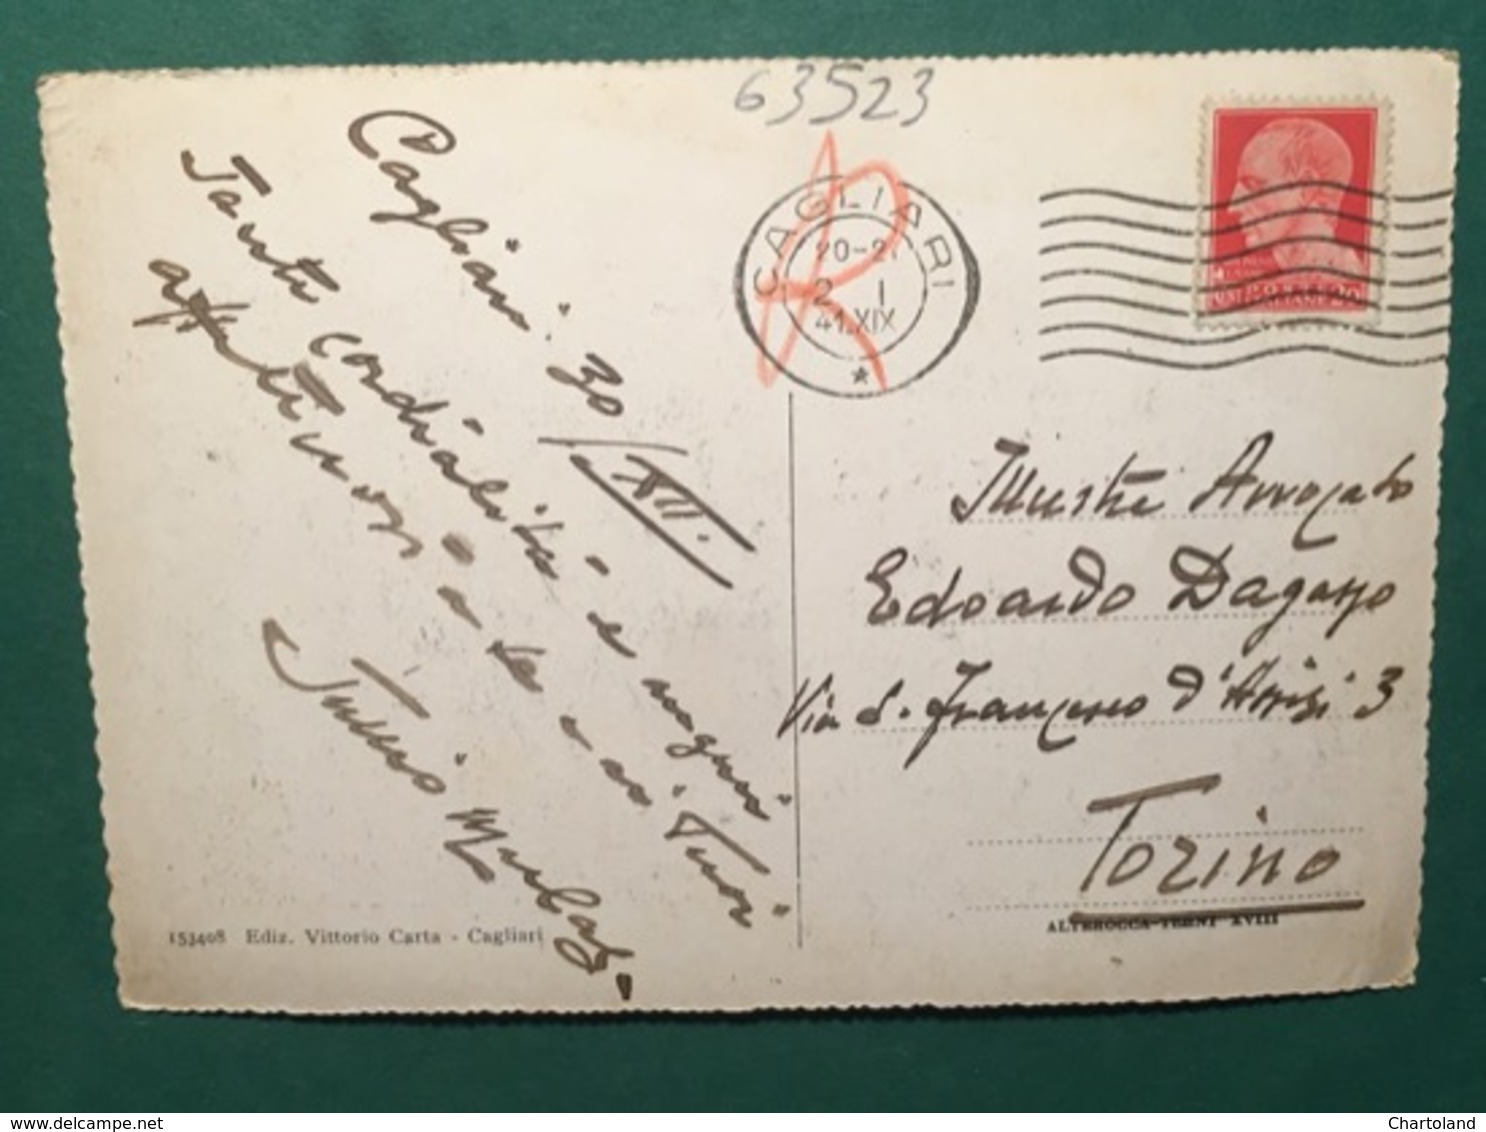 63523
R
CAGLIARI
20-21
2 I
41.XIX
Cagliari. 30
/XII.
Tanti cordialità e auguri
affettuosi a te e ai Tuoi
Tullio
Illustre Avvocato
Edoardo
Via S. Francesco d'Assisi 3
Torino
153408 Ediz. Vittorio Carta - Cagliari
ALTEROCCA-TERNI XVIII
Chartoland